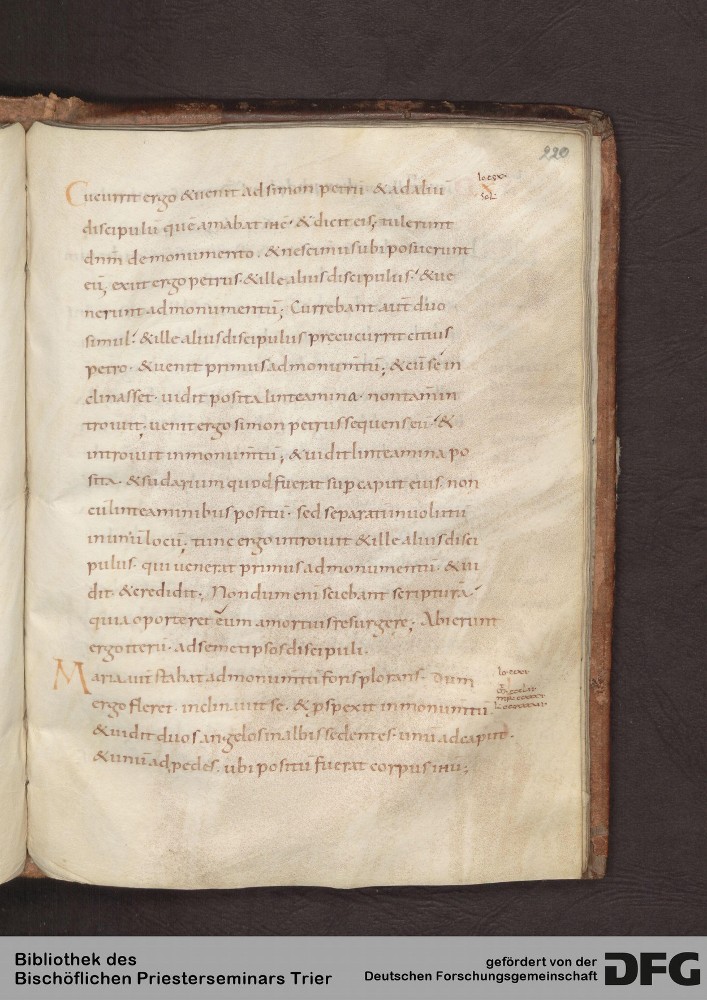 220
Cucurrit ergo & uenit ad simon petrū · & ad aliū
discipulū quē amabat ihc · & dicit eis; tulerunt
dnm de monumento · & nescimus ubi posuerunt
eū; exiit ergo petrus · & ille alius discipulus · & ue
nerunt ad monumentū; Currebant aut duo
simul · & ille alius discipulus precucurrit citius
petro · & uenit primus ad monumtū; & cū se in
clinasset · uidit posita linteamina · non tam in
troiuit; uenit ergo simon petrus sequens eū · &
introiuit in monumtū; & uidit linteamina po
sita · & sudarium quod fuerat sup caput eius · non
cū linteaminibus positū · sed separatim uolutū
in unū locū; tunc ergo introiuit & ille alius disci
pulus · qui uenerat primus ad monumentū · & ui
dit · & credidit; Nondum enī sciebant scripturā
quia oporteret eum a mortuis resurgere; Abierunt
ergo iterū · ad semetipsos discipuli ·
Maria aut stabat ad monumtū foris plorans · Dum
ergo fleret · inclinauit se · & pspexit in monumtū ·
& uidit duos angelos in albis sedentes · unū ad caput ·
& unū ad pedes · ubi positū fuerat corpus ihu;
Bibliothek des
Bischöflichen Priesterseminars Trier
gefördert von der
Deutschen Forschungsgemeinschaft
DFG